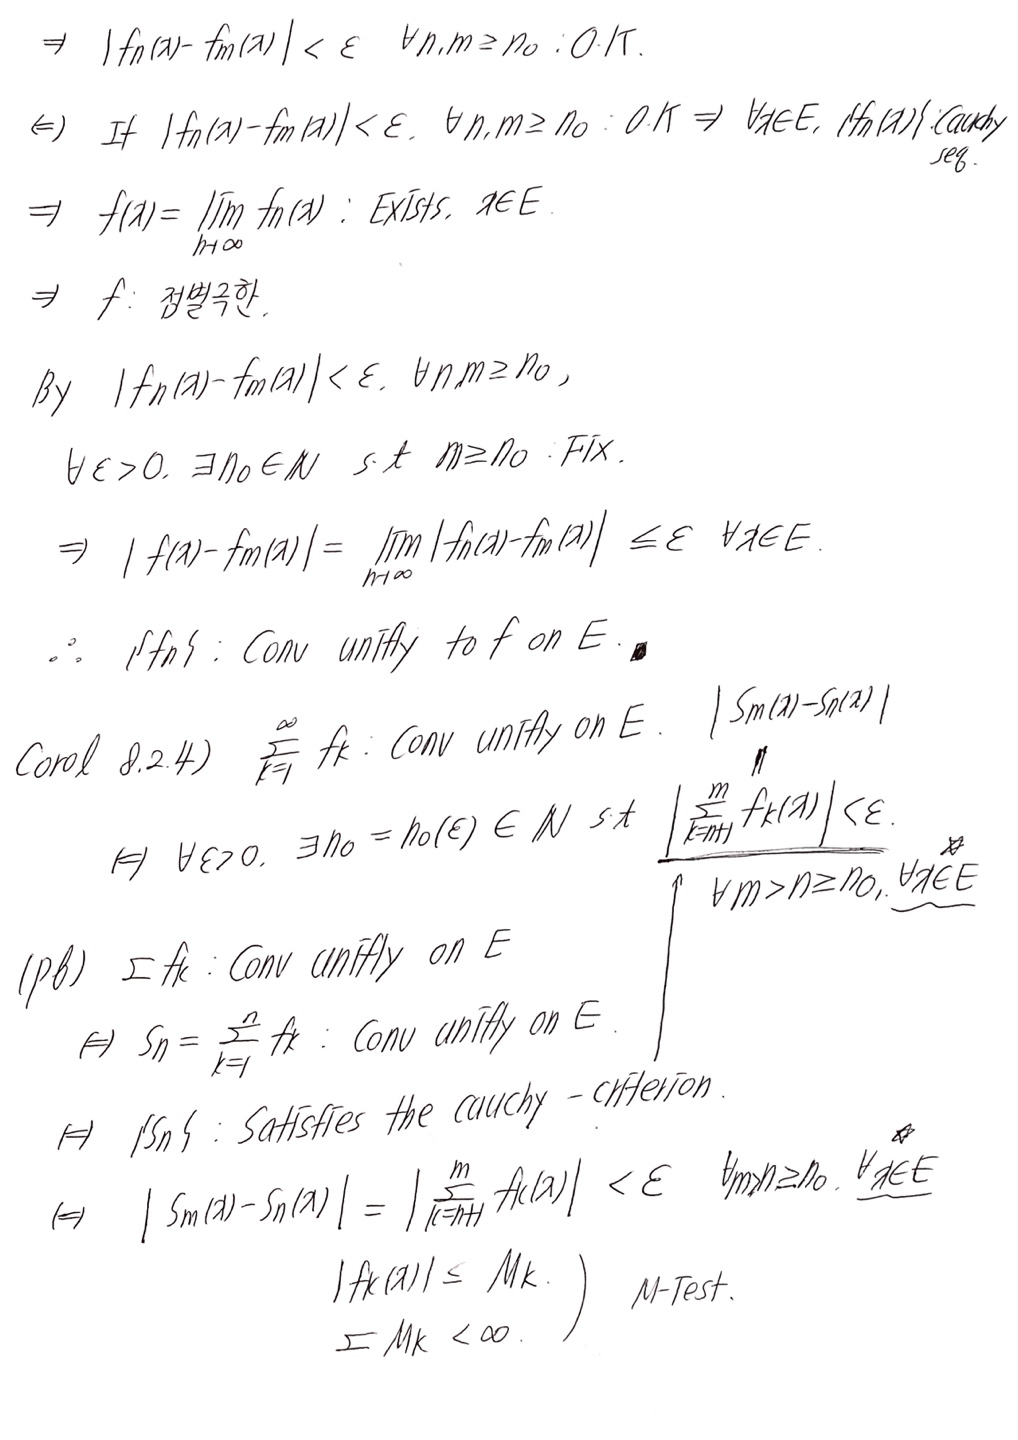 ⇒ |fn(x)-fm(x)| < ε ∀n,m≥n₀ : O.K.
⇐) If |fn(x)-fm(x)| < ε. ∀n,m≥n₀ : O.K ⇒ ∀x∈E, {fn(x)} : Cauchy seq.
⇒ f(x) = lim_{n→∞} fn(x) : Exists, x∈E.
⇒ f : 점별극한.
By |fn(x)-fm(x)| < ε. ∀n,m≥n₀,
∀ε>0. ∃n₀∈ℕ s.t m≥n₀ : Fix.
⇒ |f(x)-fm(x)| = lim_{n→∞} |fn(x)-fm(x)| ≤ ε ∀x∈E.
∴ {fn} : Conv unifly to f on E. ∎
Corol 8.2.4) ∑_{k=1}^{∞} fk : Conv unifly on E. |Sm(x)-Sn(x)|
॥
⇔ ∀ε>0, ∃n₀ = n₀(ε) ∈ ℕ s.t |∑_{k=n+1}^{m} fk(x)| < ε.
∀m>n≥n₀, ∀x∈E ☆
(pf) ∑fk : Conv unifly on E
⇔ Sn = ∑_{k=1}^{n} fk : Conv unifly on E.
⇔ {Sn} : Satisfies the cauchy - criterion.
⇔ |Sm(x)-Sn(x)| = |∑_{k=n+1}^{m} fk(x)| < ε ∀m>n≥n₀. ∀x∈E ☆
|fk(x)| ≤ Mk. ) M-Test.
∑ Mk < ∞.